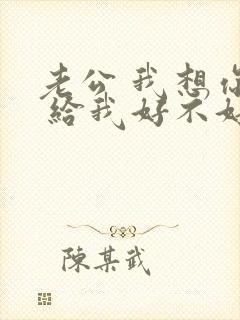 老公我想你
给我好不好
陈某武